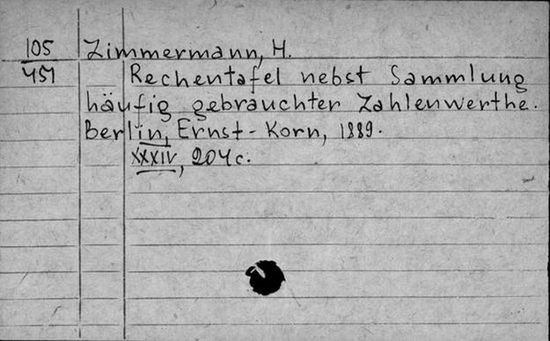 105 Zimmermann, H.
451 Rechentafel nebst Sammlung
häufig gebrauchter Zahlenwerthe.
Berlin, Ernst-Korn, 1889.
XXXIV, 204 c.